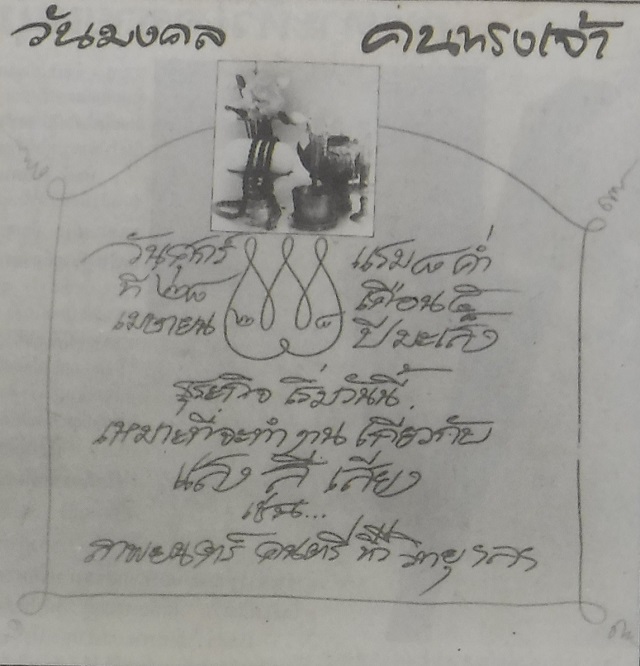 วันมงคล คนทรงเจ้า
วันศุกร์
ที่ ๒๘
เมษายน
๒ ๘
แรม ๘ ค่ำ
เดือน ๕
ปีมะเส็ง
ธุระกิจ เริ่มวันนี้
เหมาะที่จะทำงาน เกี่ยวกับ
แสง สี เสียง
เช่น...
ภาพยนตร์ ดนตรี ทีวี วิทยุ ฯลฯ